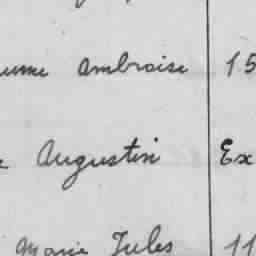 Ambroise 15
Augustin Ex
Marie Jules 11